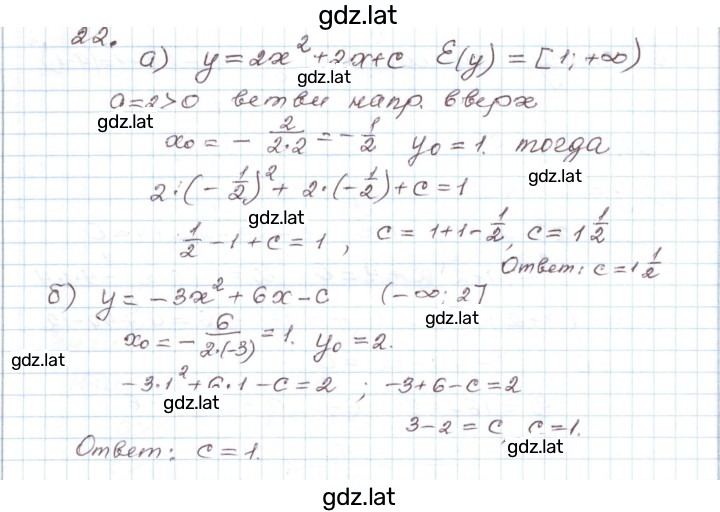 gdz.lat
22.
а) y = 2x² + 2x + c E(y) = [1; +∞)
gdz.lat
a = 2 > 0 ветви напр. вверх
gdz.lat
x₀ = - 2/(2·2) = - 1/2 y₀ = 1. тогда
gdz.lat
2·(-1/2)² + 2·(-1/2) + c = 1
gdz.lat
1/2 - 1 + c = 1, c = 1 + 1 - 1/2, c = 1 1/2
Ответ: c = 1 1/2
б) y = -3x² + 6x - c (-∞; 2]
gdz.lat
x₀ = - 6/(2·(-3)) = 1. y₀ = 2.
gdz.lat
-3·1² + 6·1 - c = 2 ; -3 + 6 - c = 2
gdz.lat
3 - 2 = c, c = 1.
Ответ: c = 1.
gdz.lat
gdz.lat